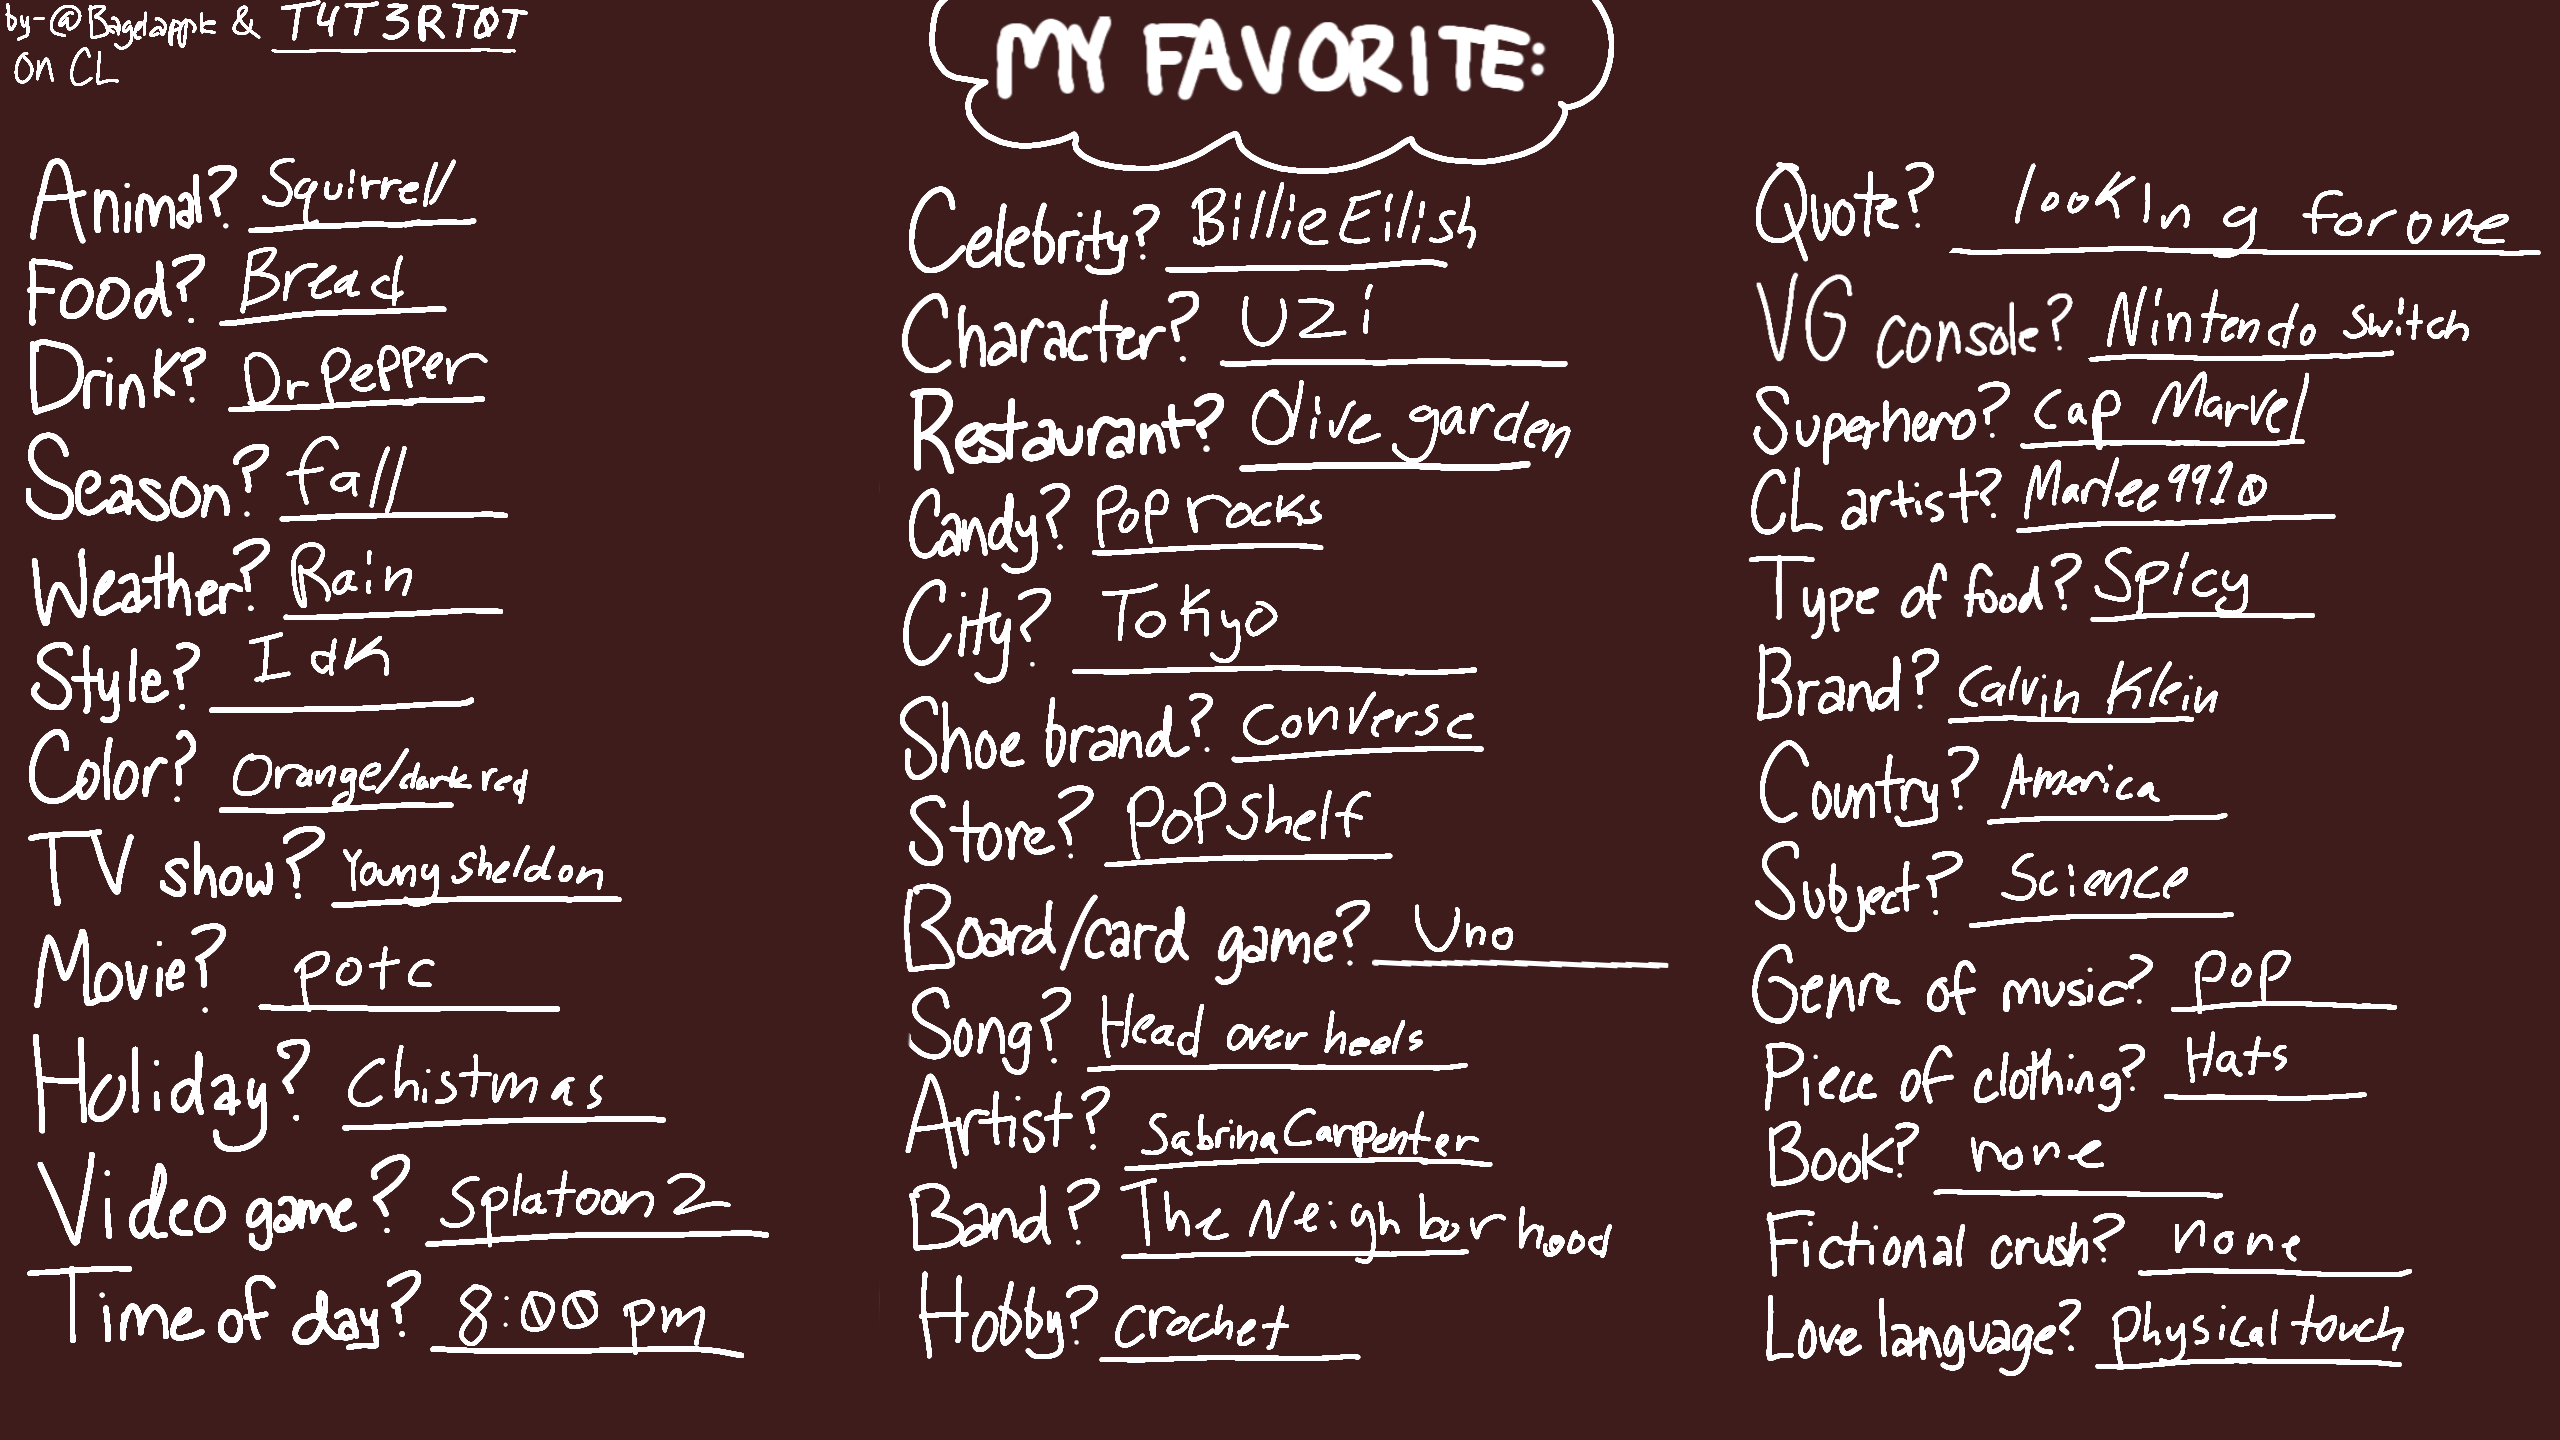 by-@Bagelapple & T4T3RT0T
on CL
MY FAVORITE:
Animal? Squirrell
Food? Bread
Drink? Dr Pepper
Season? fall
Weather? Rain
Style? Idk
Color? Orange/dark red
TV show? Young sheldon
Movie? potc
Holiday? Chistmas
Video game? Splatoon 2
Time of day? 8:00 pm
Celebrity? Billie Eilish
Character? Uzi
Restaurant? Olive garden
Candy? Pop rocks
City? Tokyo
Shoe brand? converse
Store? PopShelf
Board/card game? Uno
Song? Head over heels
Artist? Sabrina Carpenter
Band? The Neighborhood
Hobby? crochet
Quote? looking for one
VG console? Nintendo switch
Superhero? Cap Marvel
CL artist? Marlee9910
Type of food? Spicy
Brand? Calvin Klein
Country? America
Subject? Science
Genre of music? pop
Piece of clothing? Hats
Book? none
Fictional crush? none
Love language? physical touch